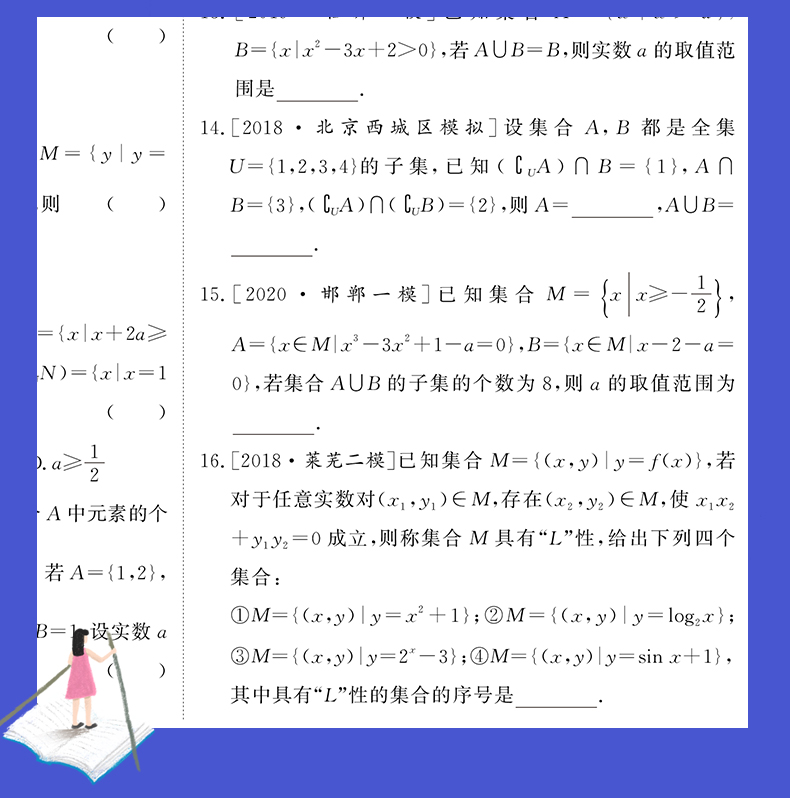 (　　)
M={y|y=
则　(　　)
={x|x+2a≥
N)={x|x=1
(　　)
a≥1/2
A中元素的个
若A={1,2},
B=1,设实数a
(　　)
B={x|x²-3x+2>0},若A∪B=B,则实数a的取值范
围是________.
14.[2018·北京西城区模拟]设集合 A,B 都是全集
U={1,2,3,4}的子集,已知(∁UA)∩B={1},A∩
B={3},(∁UA)∩(∁UB)={2},则A=________,A∪B=
________.
15.[2020·邯郸一模]已知集合 M={x|x≥-1/2},
A={x∈M|x³-3x²+1-a=0},B={x∈M|x-2-a=
0},若集合A∪B的子集的个数为8,则a的取值范围为
________.
16.[2018·莱芜二模]已知集合M={(x,y)|y=f(x)},若
对于任意实数对(x₁,y₁)∈M,存在(x₂,y₂)∈M,使x₁x₂
+y₁y₂=0成立,则称集合M具有“L”性,给出下列四个
集合:
①M={(x,y)|y=x²+1};②M={(x,y)|y=log₂x};
③M={(x,y)|y=2ˣ-3};④M={(x,y)|y=sin x+1},
其中具有“L”性的集合的序号是________.